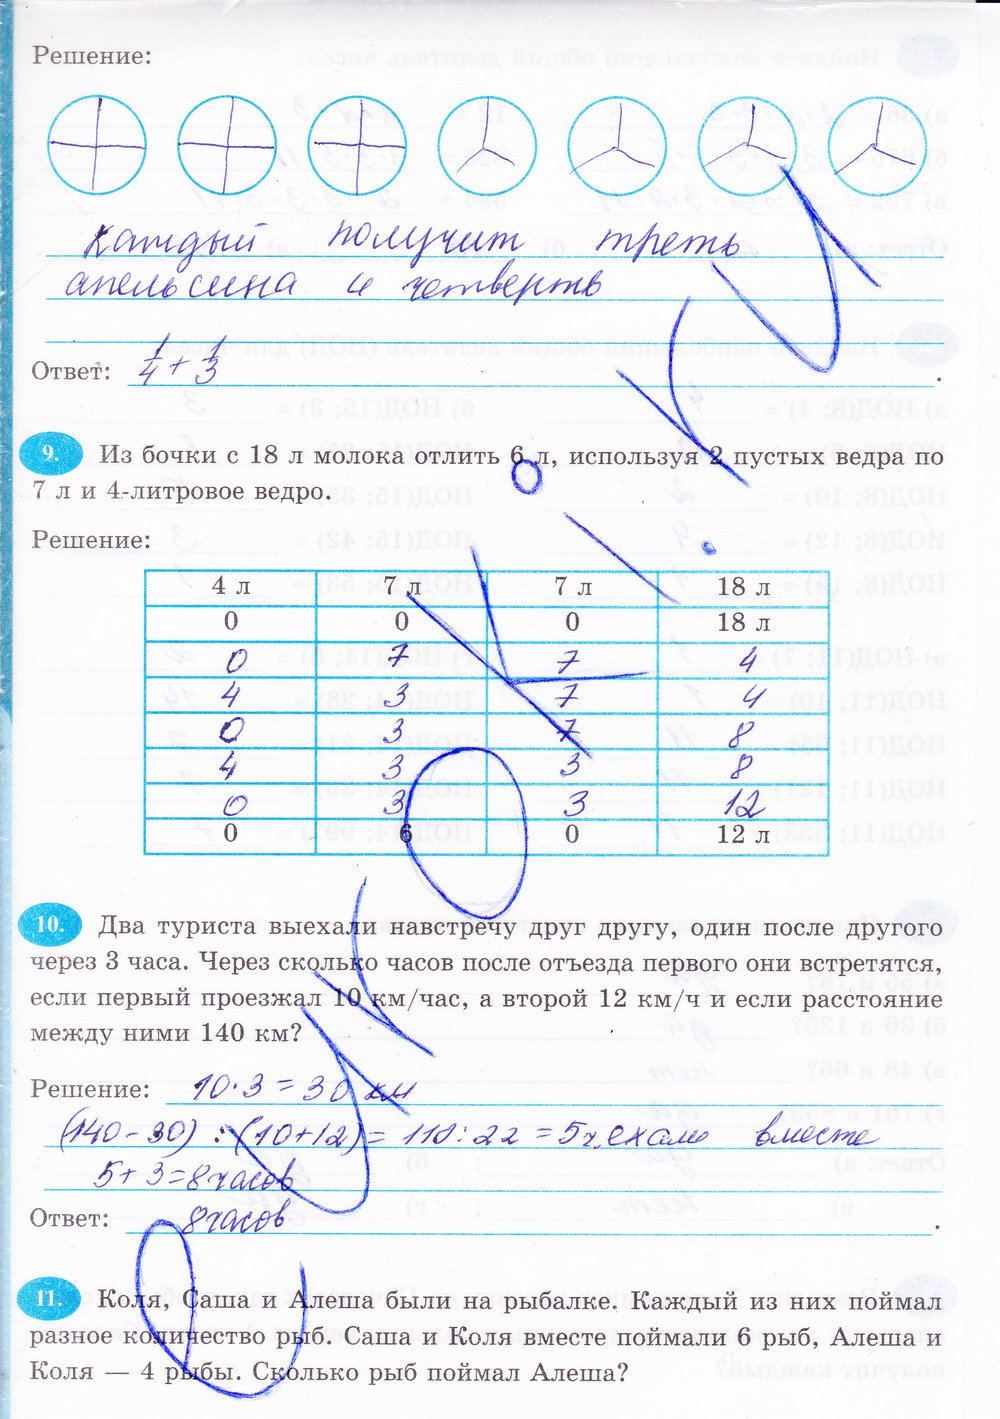 Решение:
каждый получит треть
апельсина и четверть
Ответ: 1/4 + 1/3.
9. Из бочки с 18 л молока отлить 6 л, используя 2 пустых ведра по
7 л и 4-литровое ведро.
Решение:
4 л 7 л 7 л 18 л
0 0 0 18 л
0 7 7 4
4 3 7 4
0 3 7 8
4 3 3 8
0 3 3 12
0 6 0 12 л
10. Два туриста выехали навстречу друг другу, один после другого
через 3 часа. Через сколько часов после отъезда первого они встретятся,
если первый проезжал 10 км/час, а второй 12 км/ч и если расстояние
между ними 140 км?
Решение: 10·3=30 км
(140-30) : (10+12)= 110:22 =5ч. ехали вместе
5+3=8 часов
Ответ: 8 часов.
11. Коля, Саша и Алеша были на рыбалке. Каждый из них поймал
разное количество рыб. Саша и Коля вместе поймали 6 рыб, Алеша и
Коля — 4 рыбы. Сколько рыб поймал Алеша?